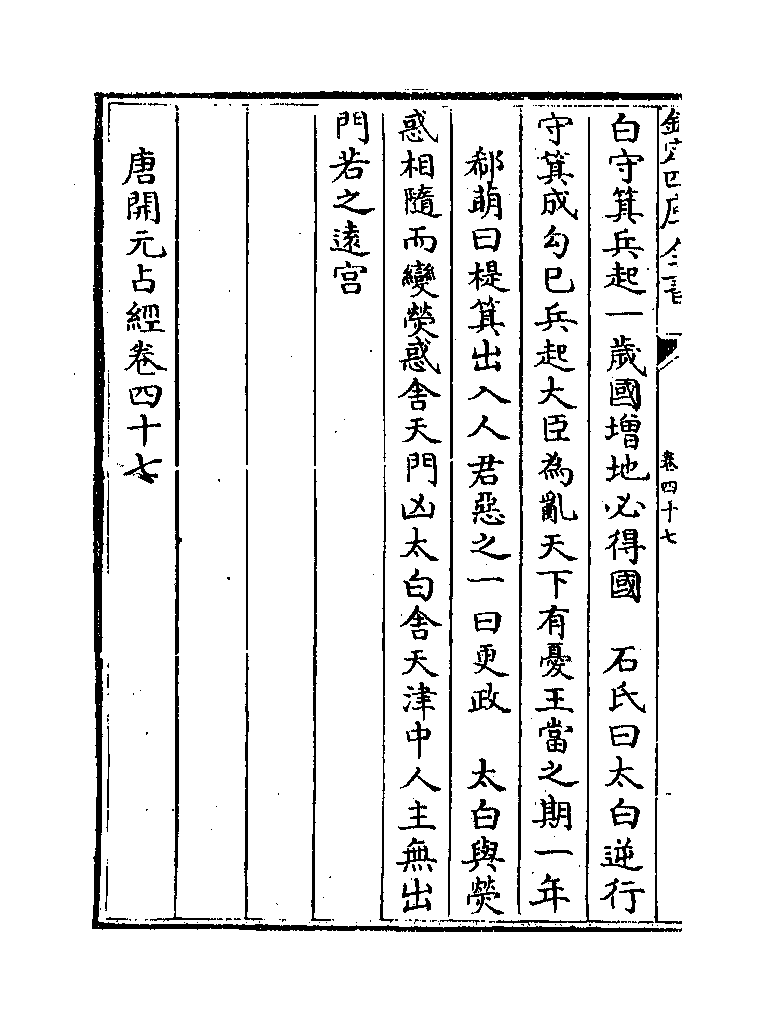 欽定四庫全書
卷四十七
白守箕兵起一歲國增地必得國　石氏曰太白逆行
守箕成勾巳兵起大臣為亂天下有憂王當之期一年
郗萌曰提箕出入人君惡之一曰更政　太白與熒
惑相隨而變熒惑舍天門凶太白舍天津中人主無出
門若之遠宫
唐開元占經卷四十七